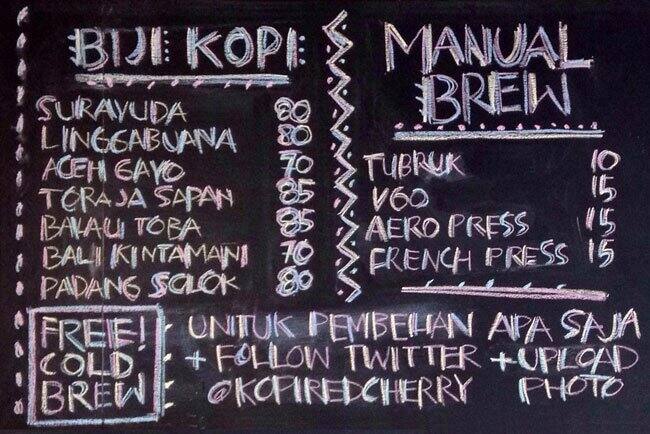 BIJI KOPI
SURAYUDA 80
LINGGABUANA 80
ACEH GAYO 70
TORAJA SAPAN 85
BALAU TOBA 85
BALI KINTAMANI 70
PADANG SOLOK 80
MANUAL
BREW
TUBRUK 10
V60 15
AERO PRESS 15
FRENCH PRESS 15
FREE!
COLD
BREW
UNTUK PEMBELIHAN APA SAJA
+ FOLLOW TWITTER + UPLOAD
@KOPIREDCHERRY PHOTO